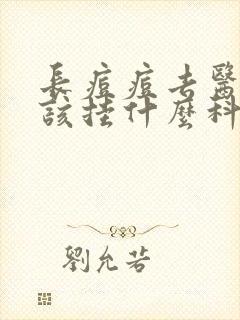 長痘痘去醫
該挂什麼科
劉允若